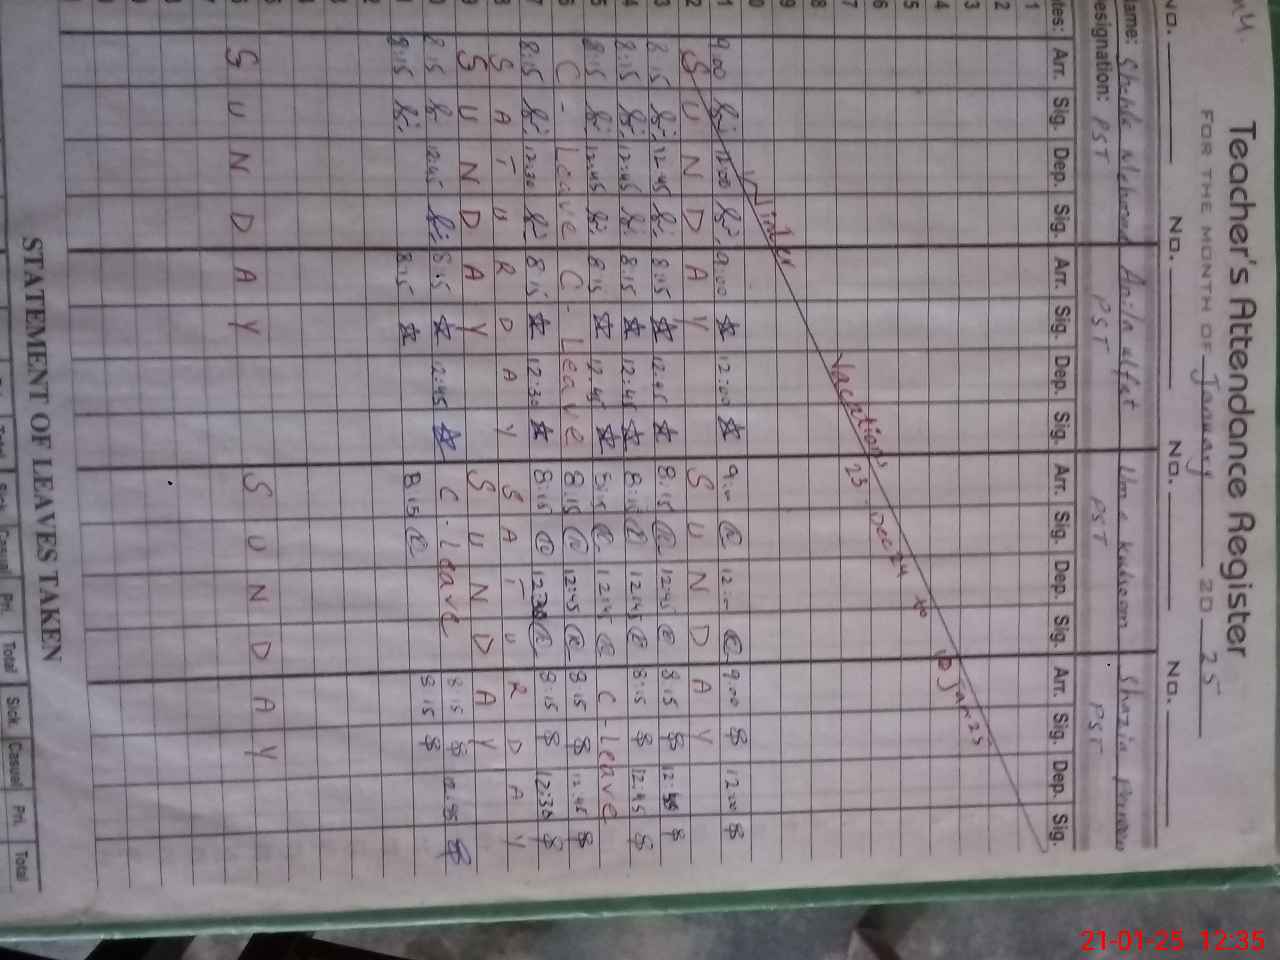 Teacher's Attendance Register
FOR THE MONTH OF January 2025
No. No. No. No.
Name: Anila altat Ume kulsoom Shazia
Designation: PST PST PST PST
Arr. Sig. Dep. Sig. Arr. Sig. Dep. Sig. Arr. Sig. Dep. Sig. Arr. Sig. Dep. Sig.
1
2
3
4
5
6
7
8
9
0
Winter Vacations 23 Dec 24 to 10 Jan 25
1 9:00 12:00 9:00 12:00 9:00 12:00 9:00 12:00
2 SUNDAY SUNDAY
3 8:15 12:45 8:15 12:45 8:15 12:45 8:15 12:45
4 8:15 12:45 8:15 12:45 8:15 12:45 8:15 12:45
5 8:15 12:45 8:15 12:45 8:15 12:45 C-Leave
6 C-Leave C-Leave 8:15 12:45 8:15 12:45
7 8:15 12:30 8:15 12:30 8:15 12:30 8:15 12:30
8 SATURDAY SATURDAY
9 SUNDAY SUNDAY
0 8:15 12:45 8:15 12:45 C-Leave 8:15 12:45
1 8:15 8:15 8:15 8:15
SUNDAY SUNDAY
STATEMENT OF LEAVES TAKEN
Total Sick Casual Pri. Total Sick Casual Pri. Total
21-01-25 12:35